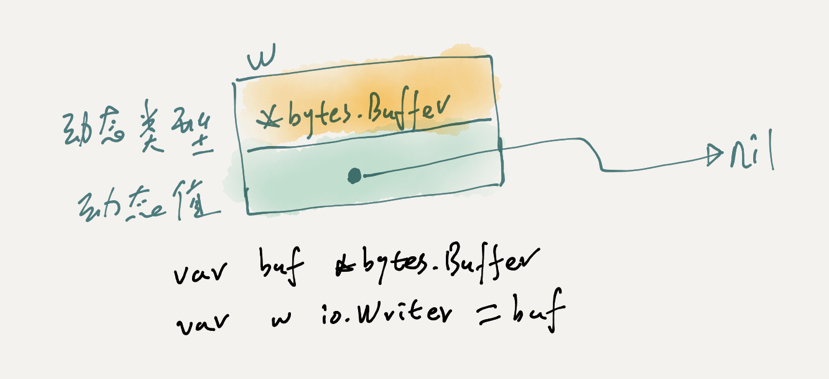 w
动态类型
*bytes.Buffer
动态值
nil
var buf *bytes.Buffer
var w io.Writer = buf